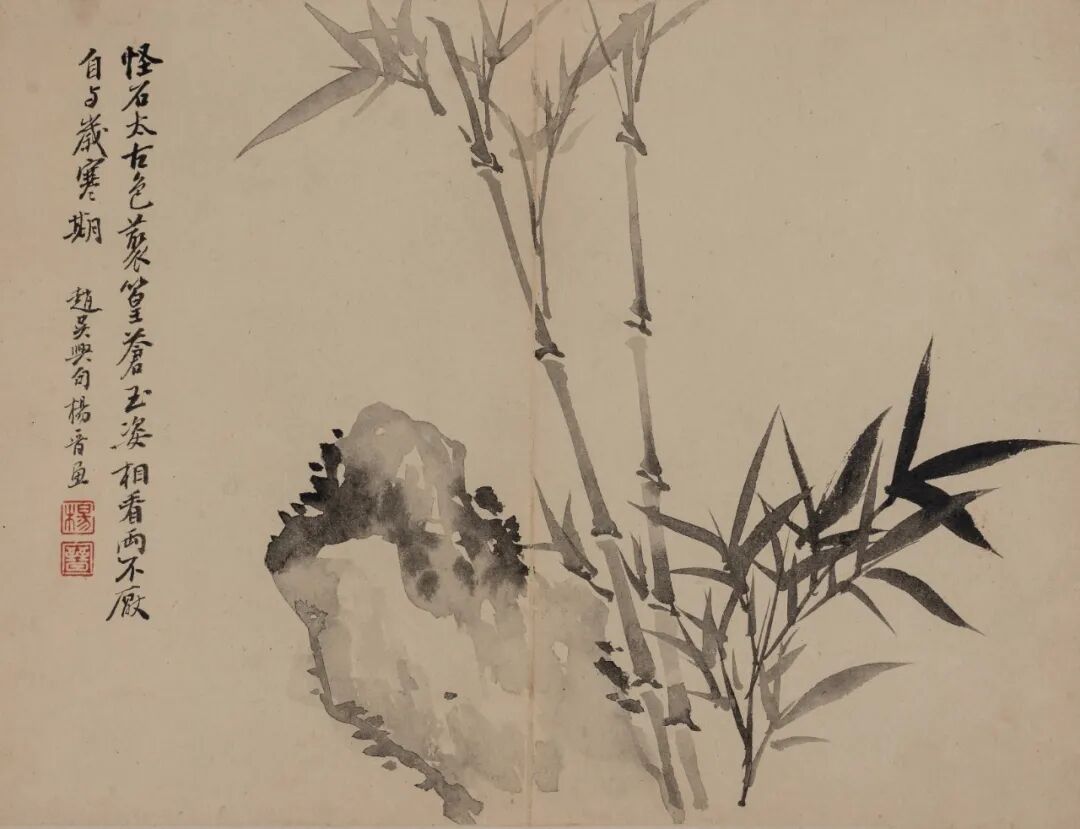 怪石太古色藂篁蒼玉姿相看両不厭
自与歲寒期　趙吳興句楊晉画
楊
晉